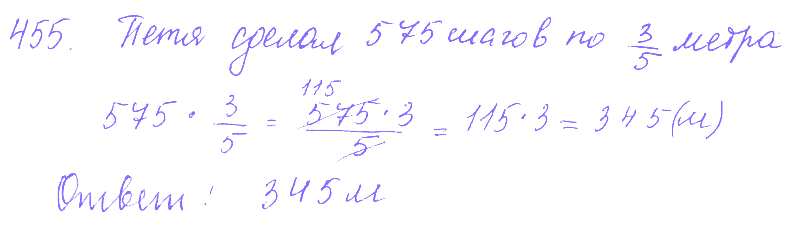 455. Петя сделал 575 шагов по 3/5 метра
575 · 3/5 = 115 575 · 3/5 = 115 · 3 = 345 (м)
Ответ: 345 м